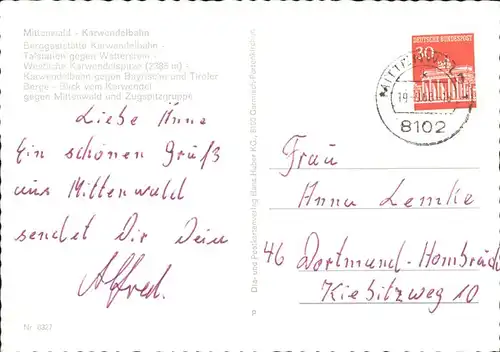 Mittenwald - Karwendelbahn
Berggaststätte Karwendelbahn -
Talstation gegen Wetterstein -
Westliche Karwendelspitze (2385 m) -
Karwendelbahn gegen Bayrische und Tiroler
Berge - Blick vom Karwendel
gegen Mittenwald und Zugspitzgruppe
Liebe Änne
Ein schönen Gruß
aus Mittenwald
sendet Dir Dein
Alfred.
Nr. 6327
Dia- und Postkartenverlag Hans Huber KG., 8100 Garmisch-Partenkirchen
P
30
DEUTSCHE BUNDESPOST
MITTENWALD
8102
Frau
Anna Lemke
46 Dortmund-Hombruch
Kiebitzweg 10